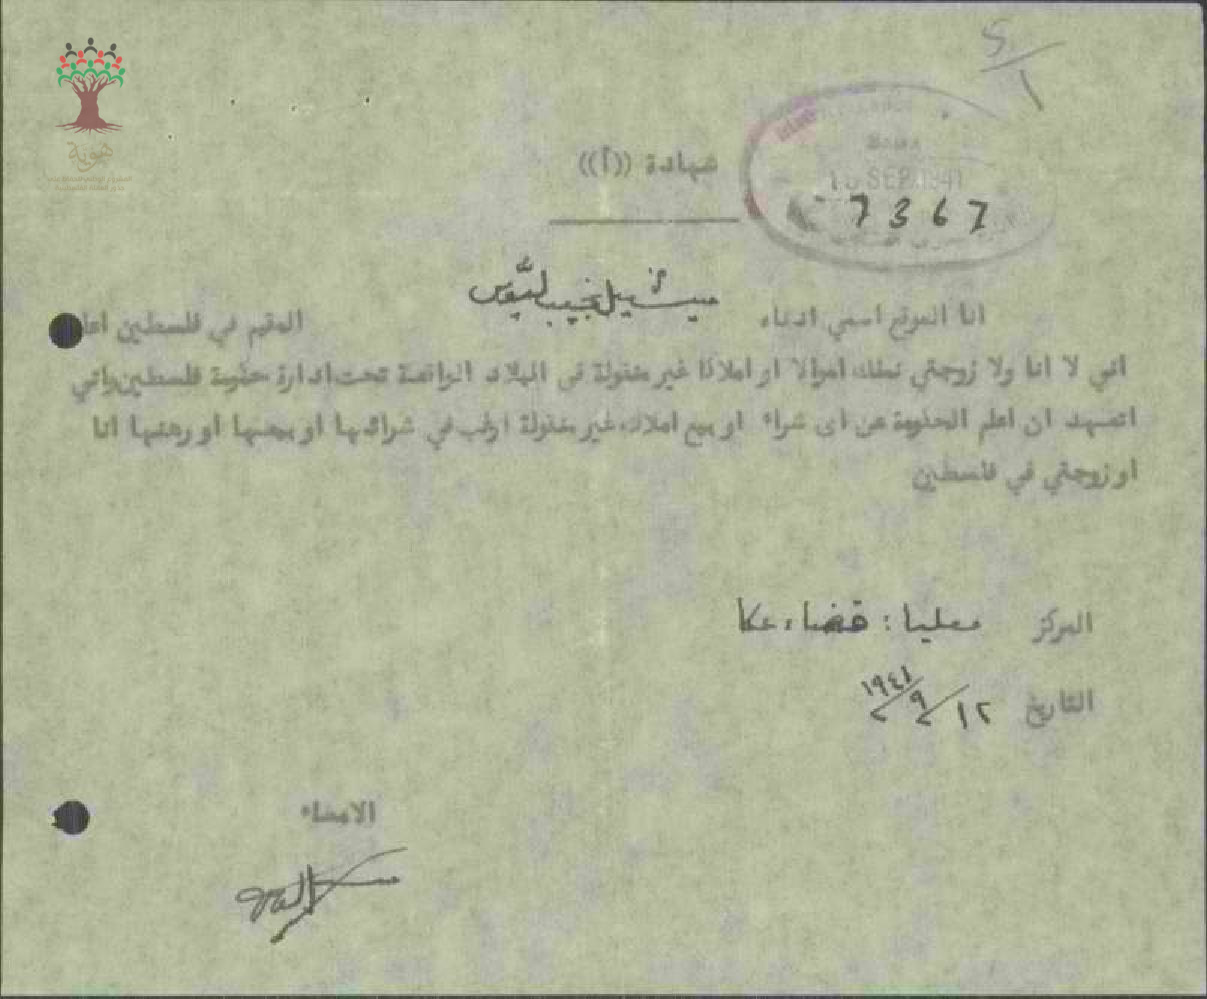 ٥/١
هوية
HAIFA
10 SEP 1941
7367
شهادة ((أ))
انا الموقع اسمي ادناه ميشيل نجيب ليّوس المقيم في فلسطين اعلن
انني لا انا ولا زوجتي نملك اموالا او املاكا غير منقولة في البلاد الواقعة تحت ادارة حكومة فلسطين واني
اتعهد ان اعلم الحكومة عن اى شراء او بيع املاك غير منقولة ارغب في شرائها او بيعها او رهنها انا
او زوجتي في فلسطين
المركز معليا : قضاء عكا
التاريخ ١٢/٩/١٩٤١
الامضاء